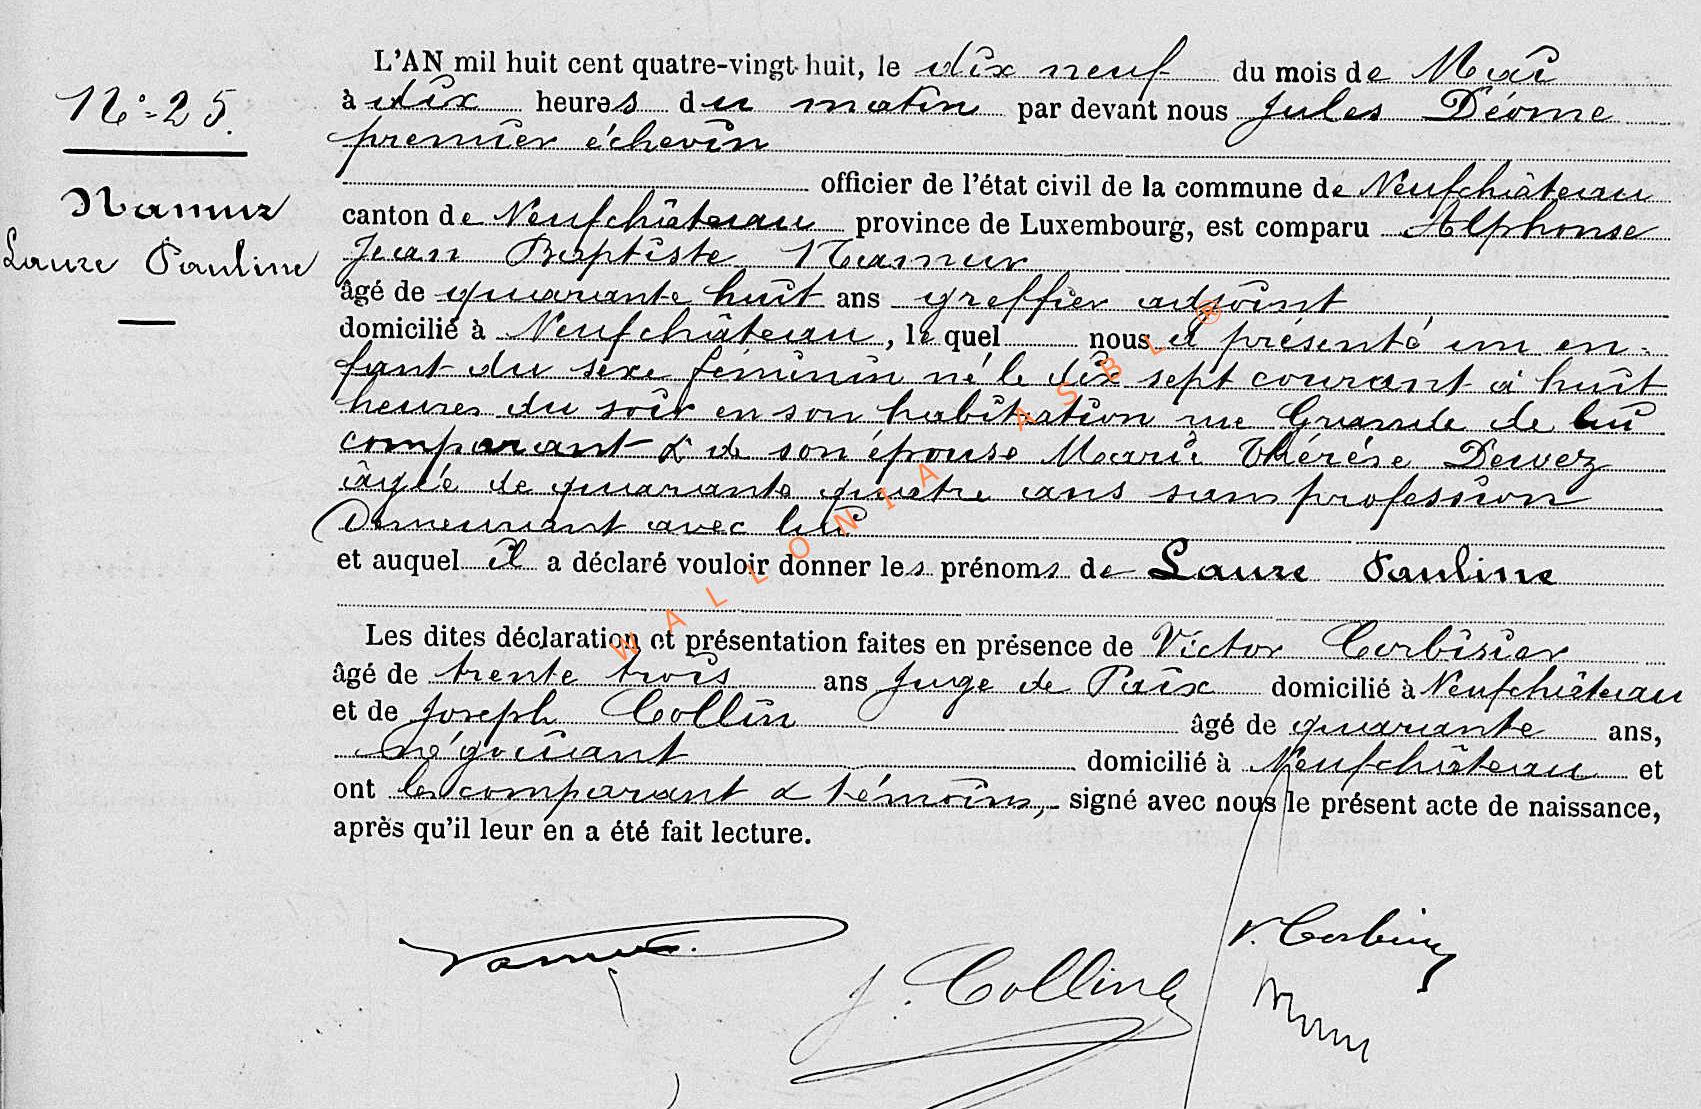 L'AN mil huit cent quatre-vingt-huit, le dix neuf du mois de Mai
N° 25.
à dix heures du matin par devant nous Jules Déome
premier échevin
officier de l'état civil de la commune de Neufchâteau
Namur
canton de Neufchâteau province de Luxembourg, est comparu Alphonse
Laure Pauline
Jean Baptiste Namur
âgé de quarante huit ans greffier adjoint
domicilié à Neufchâteau, le quel nous a présenté un en-
fant du sexe féminin né le dix sept courant à huit
heures du soir en son habitation rue Grande de lui
comparant & de son épouse Marie Thérèse Dewez
âgée de quarante quatre ans sans profession
Demeurant avec lui
et auquel il a déclaré vouloir donner les prénoms de Laure Pauline
Les dites déclaration et présentation faites en présence de Victor Corbisier
âgé de trente trois ans Juge de Paix domicilié à Neufchâteau
et de Joseph Collin âgé de quarante ans,
négociant domicilié à Neufchâteau et
ont les comparant & témoins, signé avec nous le présent acte de naissance,
après qu'il leur en a été fait lecture.
WALLONIA ASBL ®
Namur.
J. Collin
V. Corbisier